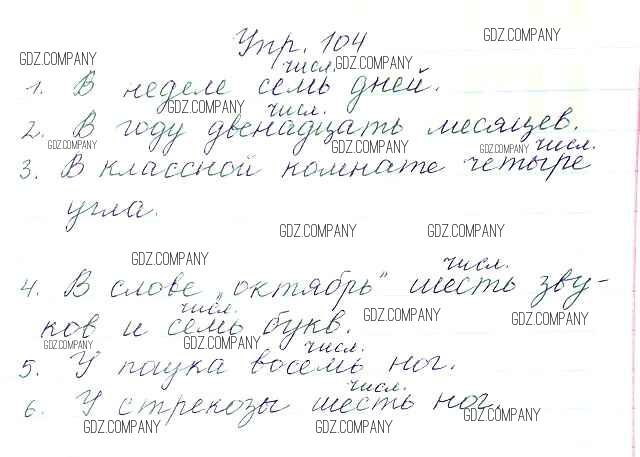 Упр. 104
GDZ.COMPANY
GDZ.COMPANY числ. GDZ.COMPANY
1. В неделе семь дней.
GDZ.COMPANY числ.
2. В году двенадцать месяцев.
GDZ.COMPANY GDZ.COMPANY GDZ.COMPANY числ.
3. В классной комнате четыре
угла.
GDZ.COMPANY GDZ.COMPANY
GDZ.COMPANY числ.
4. В слове „октябрь" шесть зву-
числ. GDZ.COMPANY GDZ.COMPANY
ков и семь букв.
GDZ.COMPANY GDZ.COMPANY числ.
5. У паука восемь ног.
числ.
6. У стрекозы шесть ног.
GDZ.COMPANY GDZ.COMPANY GDZ.COMPANY